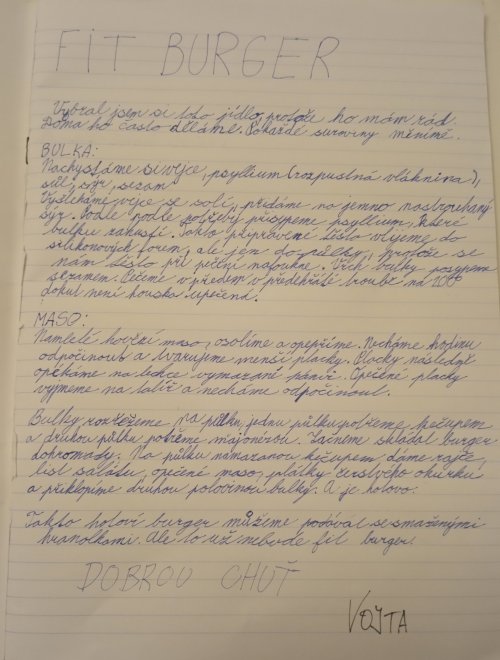 FIT BURGER
Vybral jsem si toto jídlo, protože ho mám rád.
Doma ho často děláme. Pokaždé suroviny měníme.
BULKA:
Nachystáme si vejce, psyllium (rozpustná vláknina),
sůl, sýr, sezam
Vyšleháme vejce se solí, přidáme na jemno nastrouhaný
sýr. Podle potřeby přisypeme psyllium, které
bulku zahustí. Takto připravené těsto vlijeme do
silikonových forem, ale jen do půlky, protože se
nám těsto při pečení nafoukne. Vrch bulky posypeme
sezamem. Pečeme v předem v předehřáté troubě na 200°
dokud není houska upečená.
MASO:
Namleté hovězí maso, osolíme a opepříme. Necháme hodinu
odpočinout a tvarujeme menší placky. Placky následně
opékáme na lehce vymazaní pánvi. Opečené placky
vyjmeme na talíř a necháme odpočinout.
Bulky rozřežeme na půlku, jednu půlku potřeme kečupem
a druhou půlku potřeme majonézou. Začneme skládat burger
dohromady. Na půlku namazanou kečupem dáme rajče,
list salátu, opečené maso, plátky čerstvého okurku
a přiklopíme druhou polovinou bulky. A je hotovo.
Takto hotoví burger můžeme podávat se smaženými
hranolkami. Ale to už nebude fit burger.
DOBROU CHUŤ
VOJTA